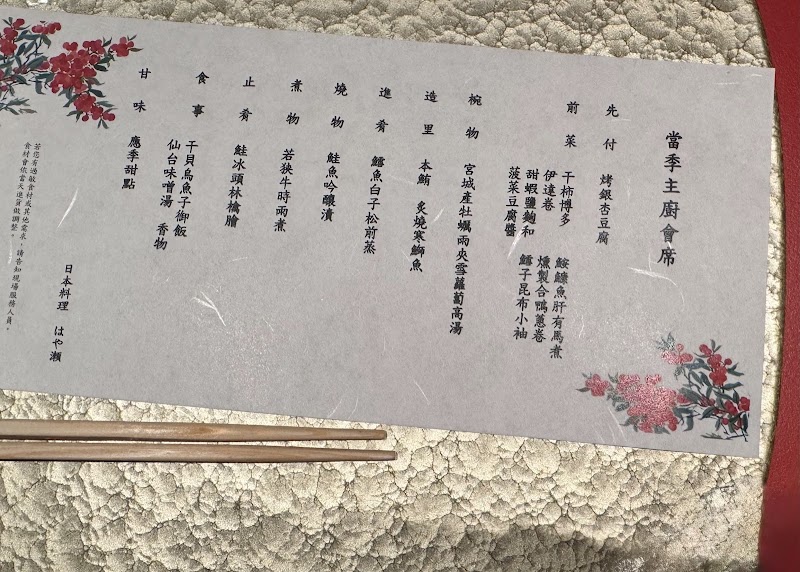 當季主廚會席
先付 烤銀杏豆腐
前菜 干柿博多 鮟鱇魚肝有馬煮
伊達卷 燻製合鴨蔥卷
甜蝦鹽麴和 鱈子昆布小袖
菠菜豆腐醬
椀物 宮城產牡蠣兩夾雪蘿蔔高湯
造里 本鮪 炙燒寒鰤魚
進肴 鱈魚白子松前蒸
燒物 鮭魚吟釀漬
煮物 若狹牛時雨煮
止肴 鮭冰頭林檎膾
食事 干貝烏魚子御飯
仙台味噌湯 香物
甘味 應季甜點
日本料理 はや瀬
若您有過敏食材或其他需求，請告知現場服務人員。
食材會依當天進貨做調整。